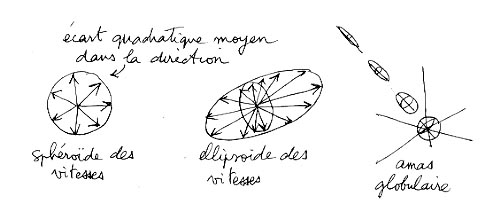 écart quadratique moyen
dans la direction
sphéroïde des
vitesses
ellipsoïde des
vitesses
amas
globulaire